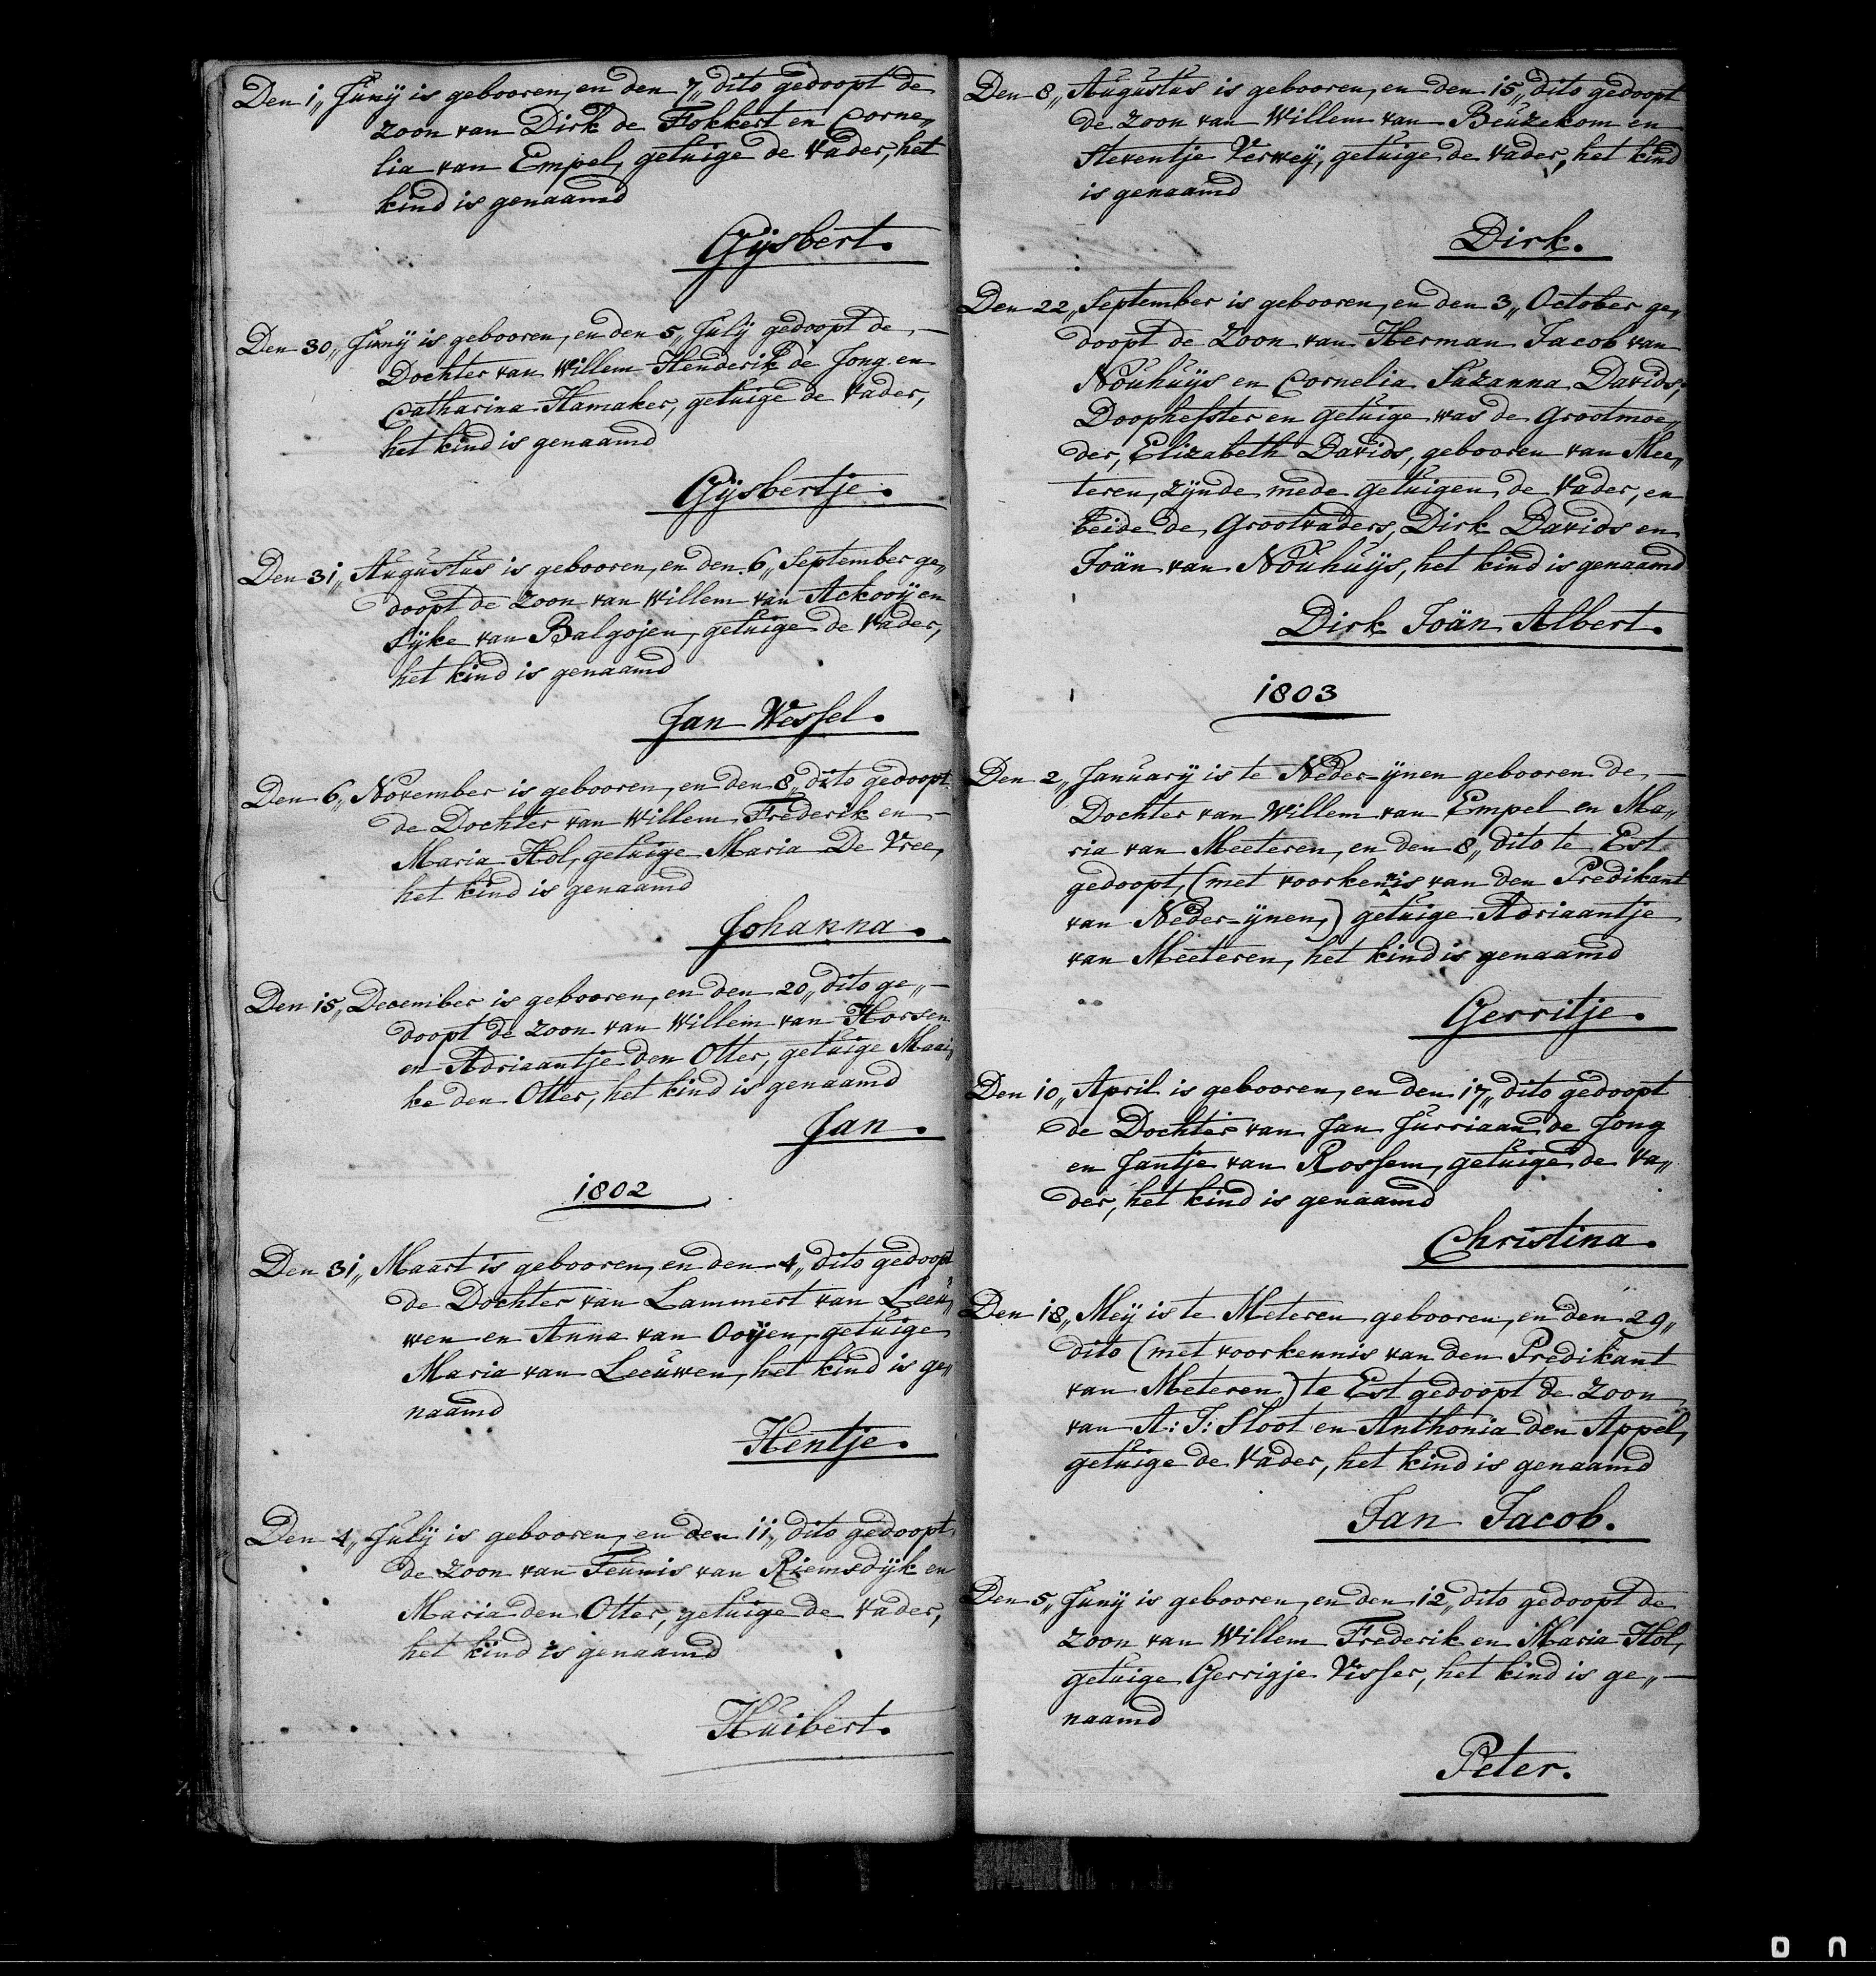 Den 1„ Junÿ is gebooren, en den 7„ dito gedoopt de
zoon van Dirk de Fokkert en Corne„
lia van Empel, getuige de Vader, het
kind is genaamd
Gÿsbert.
Den 30„ Junÿ is gebooren, en den 5„ Julÿ gedoopt de
Dochter van Willem Henderik de Jong en
Catharina Hamaker, getuige de Vader,
het kind is genaamd
Gÿsbertje.
Den 31„ Augustus is gebooren, en den 6„ September ge„
doopt de zoon van Willem van Ackooÿ en
Sÿke van Balgojen, getuige de Vader,
het kind is genaamd
Jan Wessel.
Den 6„ November is gebooren, en den 8„ dito gedoopt
de Dochter van Willem Frederik en
Maria Hol, getuige Maria De Vree,
het kind is genaamd
Johanna.
Den 15„ December is gebooren, en den 20„ dito ge„
doopt de zoon van Willem van Horsen
en Adriaantje den Otter, getuige Maai„
ke den Otter, het kind is genaamd
Jan.
1802
Den 31„ Maart is gebooren, en den 4„ dito gedoopt
de Dochter van Lammert van Leeu„
wen en Anna van Ooÿen, getuige
Maria van Leeuwen, het kind is ge„
naamd
Hentje.
Den 4„ Julÿ is gebooren, en den 11„ dito gedoopt
de zoon van Teunis van Riemsdÿk en
Maria den Otter, getuige de Vader,
het kind is genaamd
Huibert.
Den 8„ Augustus is gebooren, en den 15„ dito gedoopt
de zoon van Willem van Beuzekom en
Steventje Verweÿ, getuige de Vader, het kind
is genaamd
Dirk.
Den 22„ September is gebooren, en den 3„ October ge„
doopt de Zoon van Herman Jacob van
Nouhuÿs en Cornelia Suzanna Davids,
Doophefster en getuige was de Grootmoe„
der, Elizabeth Davids, gebooren van Mee„
teren, zÿnde mede getuigen de Vader, en
beide de Grootvaders, Dirk Davids en
Joän van Nouhuÿs, het kind is genaamd
Dirk Joän Albert.
1803
Den 2„ Januarÿ is te Neder-ÿnen gebooren de
Dochter van Willem van Empel en Ma„
ria van Meeteren, en den 8„ dito te Est
gedoopt, (met voorkennis van den Predikant
van Neder-ÿnen,) getuige Adriaantje
van Meeteren, het kind is genaamd
Gerritje.
Den 10„ April is gebooren, en den 17„ dito gedoopt
de Dochter van Jan Jurriaan de Jong
en Jantje van Rossem, getuige de Va„
der, het kind is genaamd
Christina.
Den 18„ Meÿ is te Meteren gebooren, en den 29„
dito (met voorkennis van den Predikant
van Meteren) te Est gedoopt de zoon
van A: J: Sloot en Anthonia den Appel,
getuige de Vader, het kind is genaamd
Jan Jacob.
Den 5„ Junÿ is gebooren, en den 12„ dito gedoopt de
zoon van Willem Frederik en Maria Hol,
getuige Gerrigje Visser, het kind is ge„
naamd
Peter.